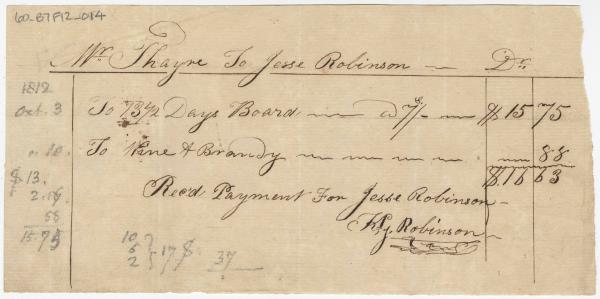 60-B7F12-014
Mr. Thayre To Jesse Robinson Dr.
1812
Oct. 3 To 73 1/2 Days Board a 7/8 $ 15 75
" 10. To Wine & Brandy 88
$ 16 63
$ 13.
Rec'd Payment For Jesse Robinson
Robinson
58
15.75
10
6 17 $ 37
2